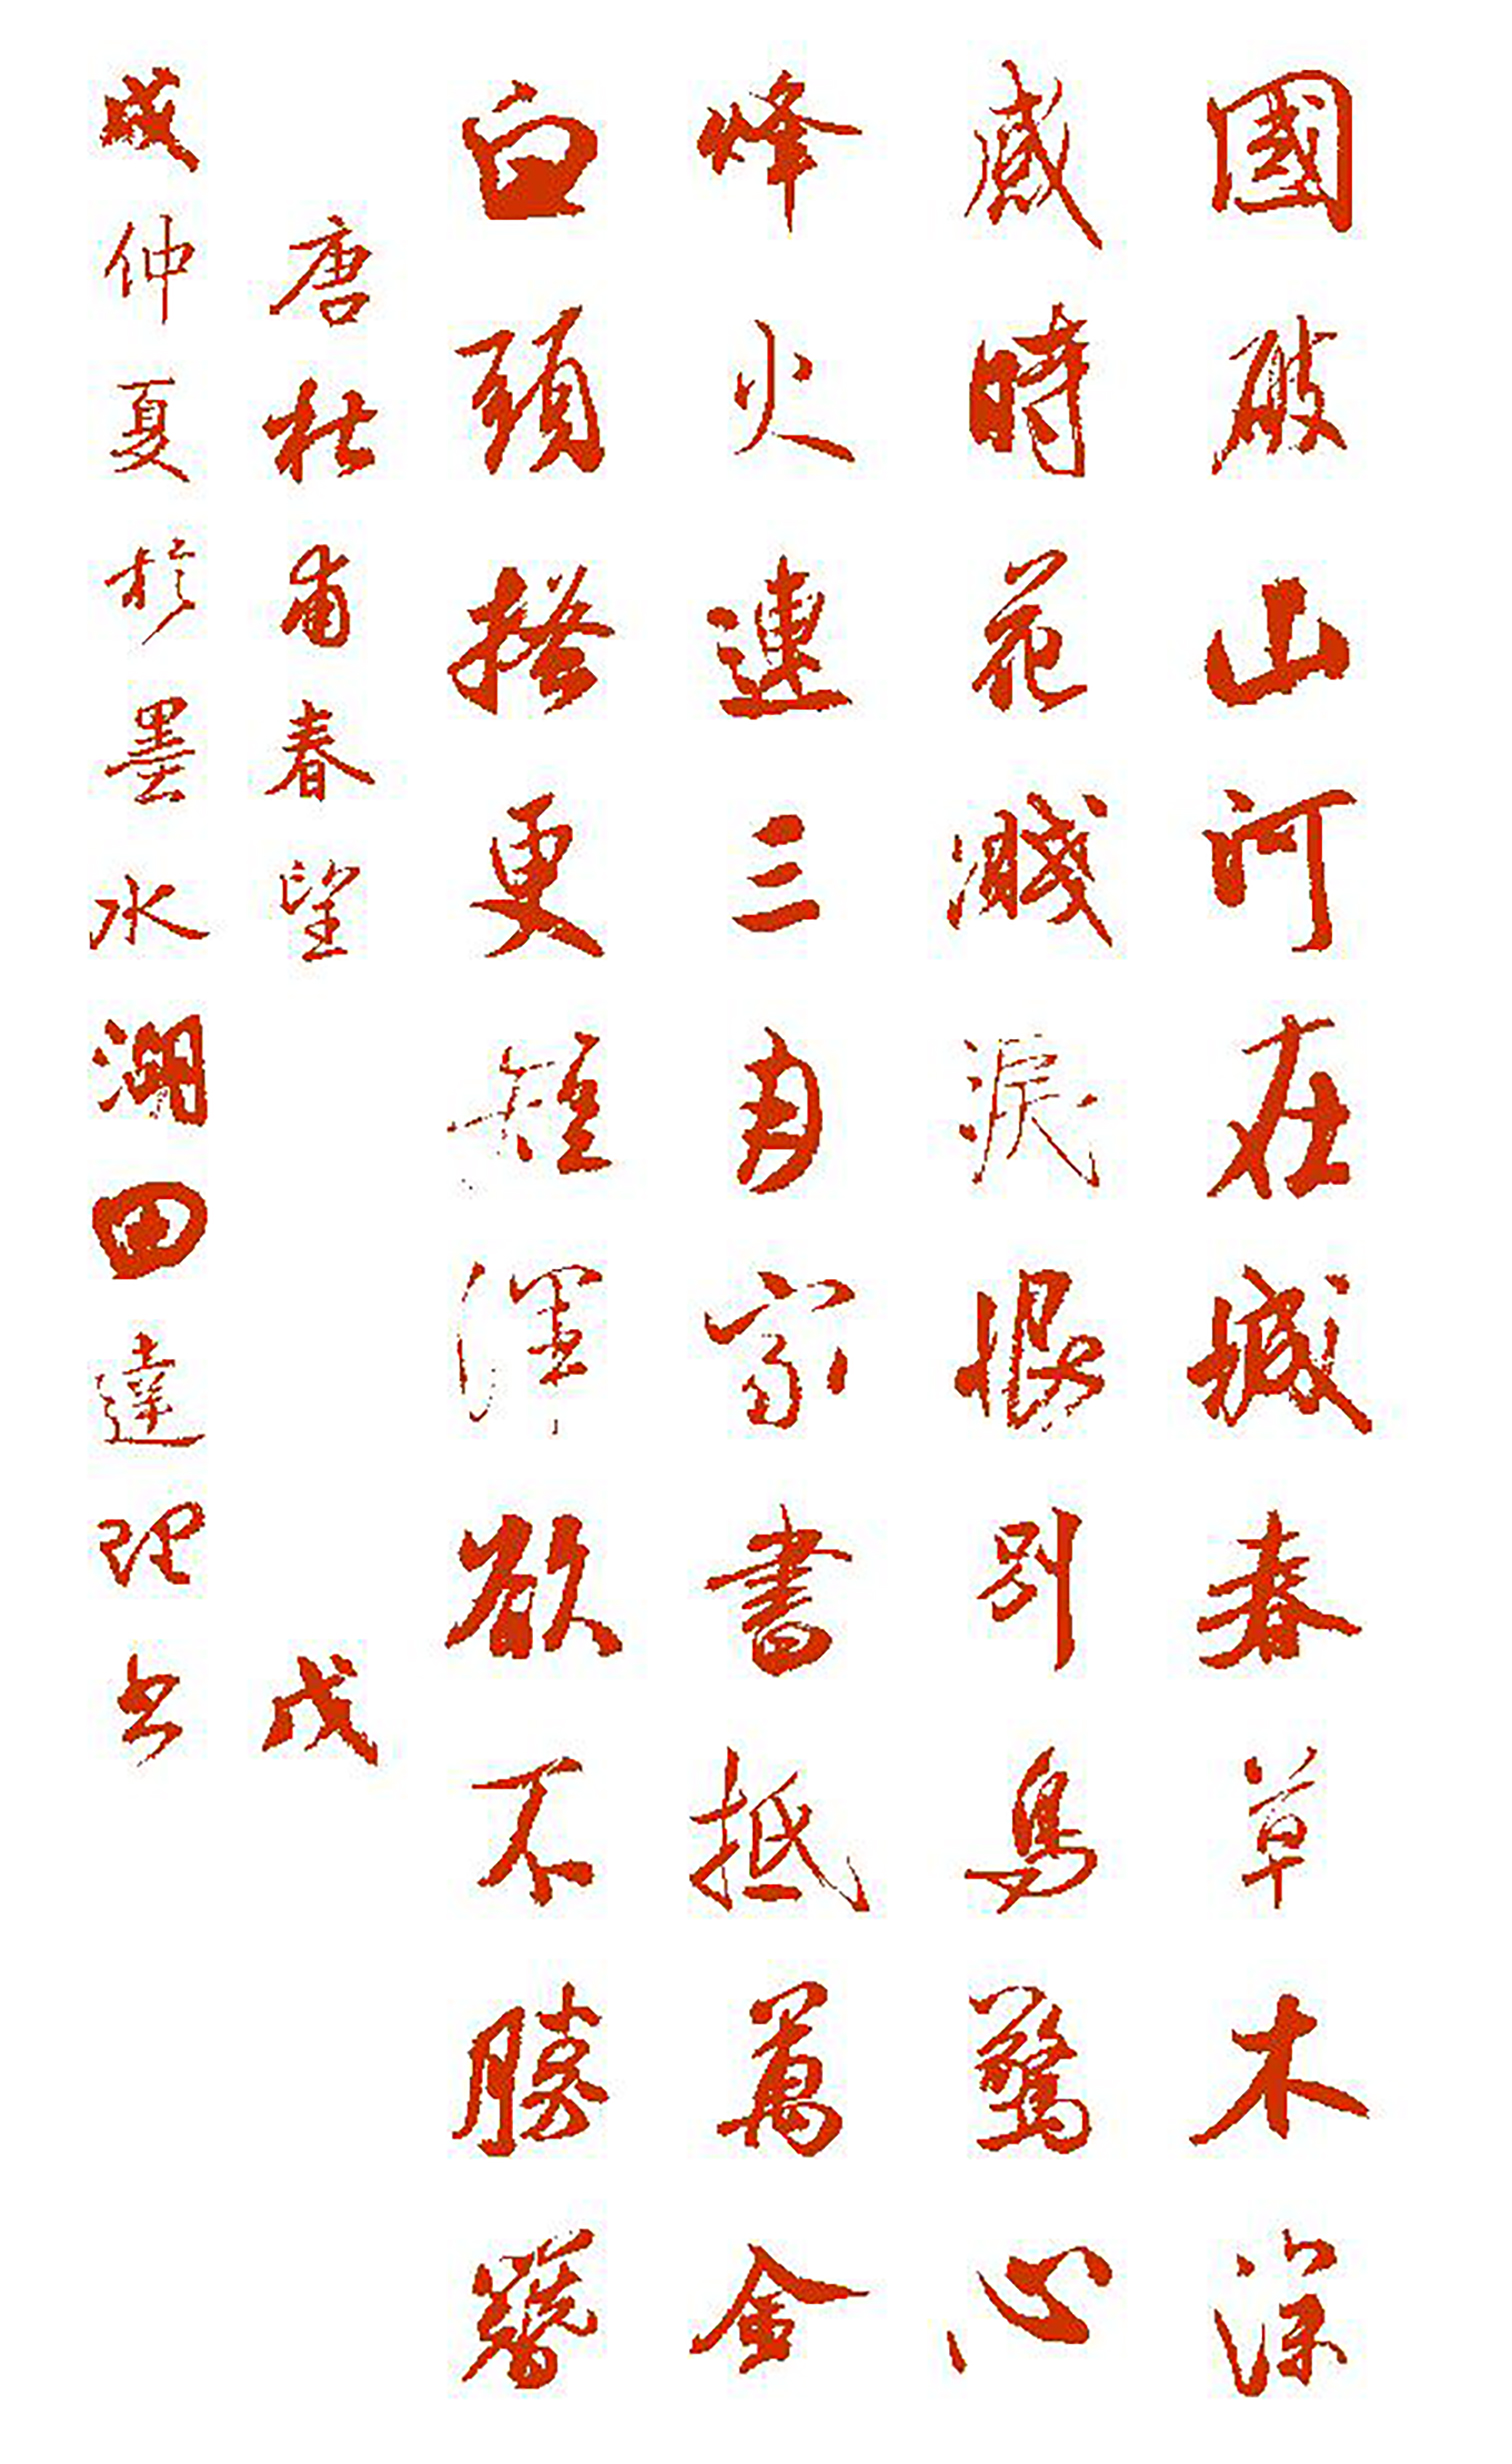 國破山河在城春草木深
感時花濺淚恨別鳥驚心
烽火連三月家書抵萬金
白頭搔更短渾欲不勝簪
唐杜甫春望 戊
戌仲夏於墨水湖田達理書